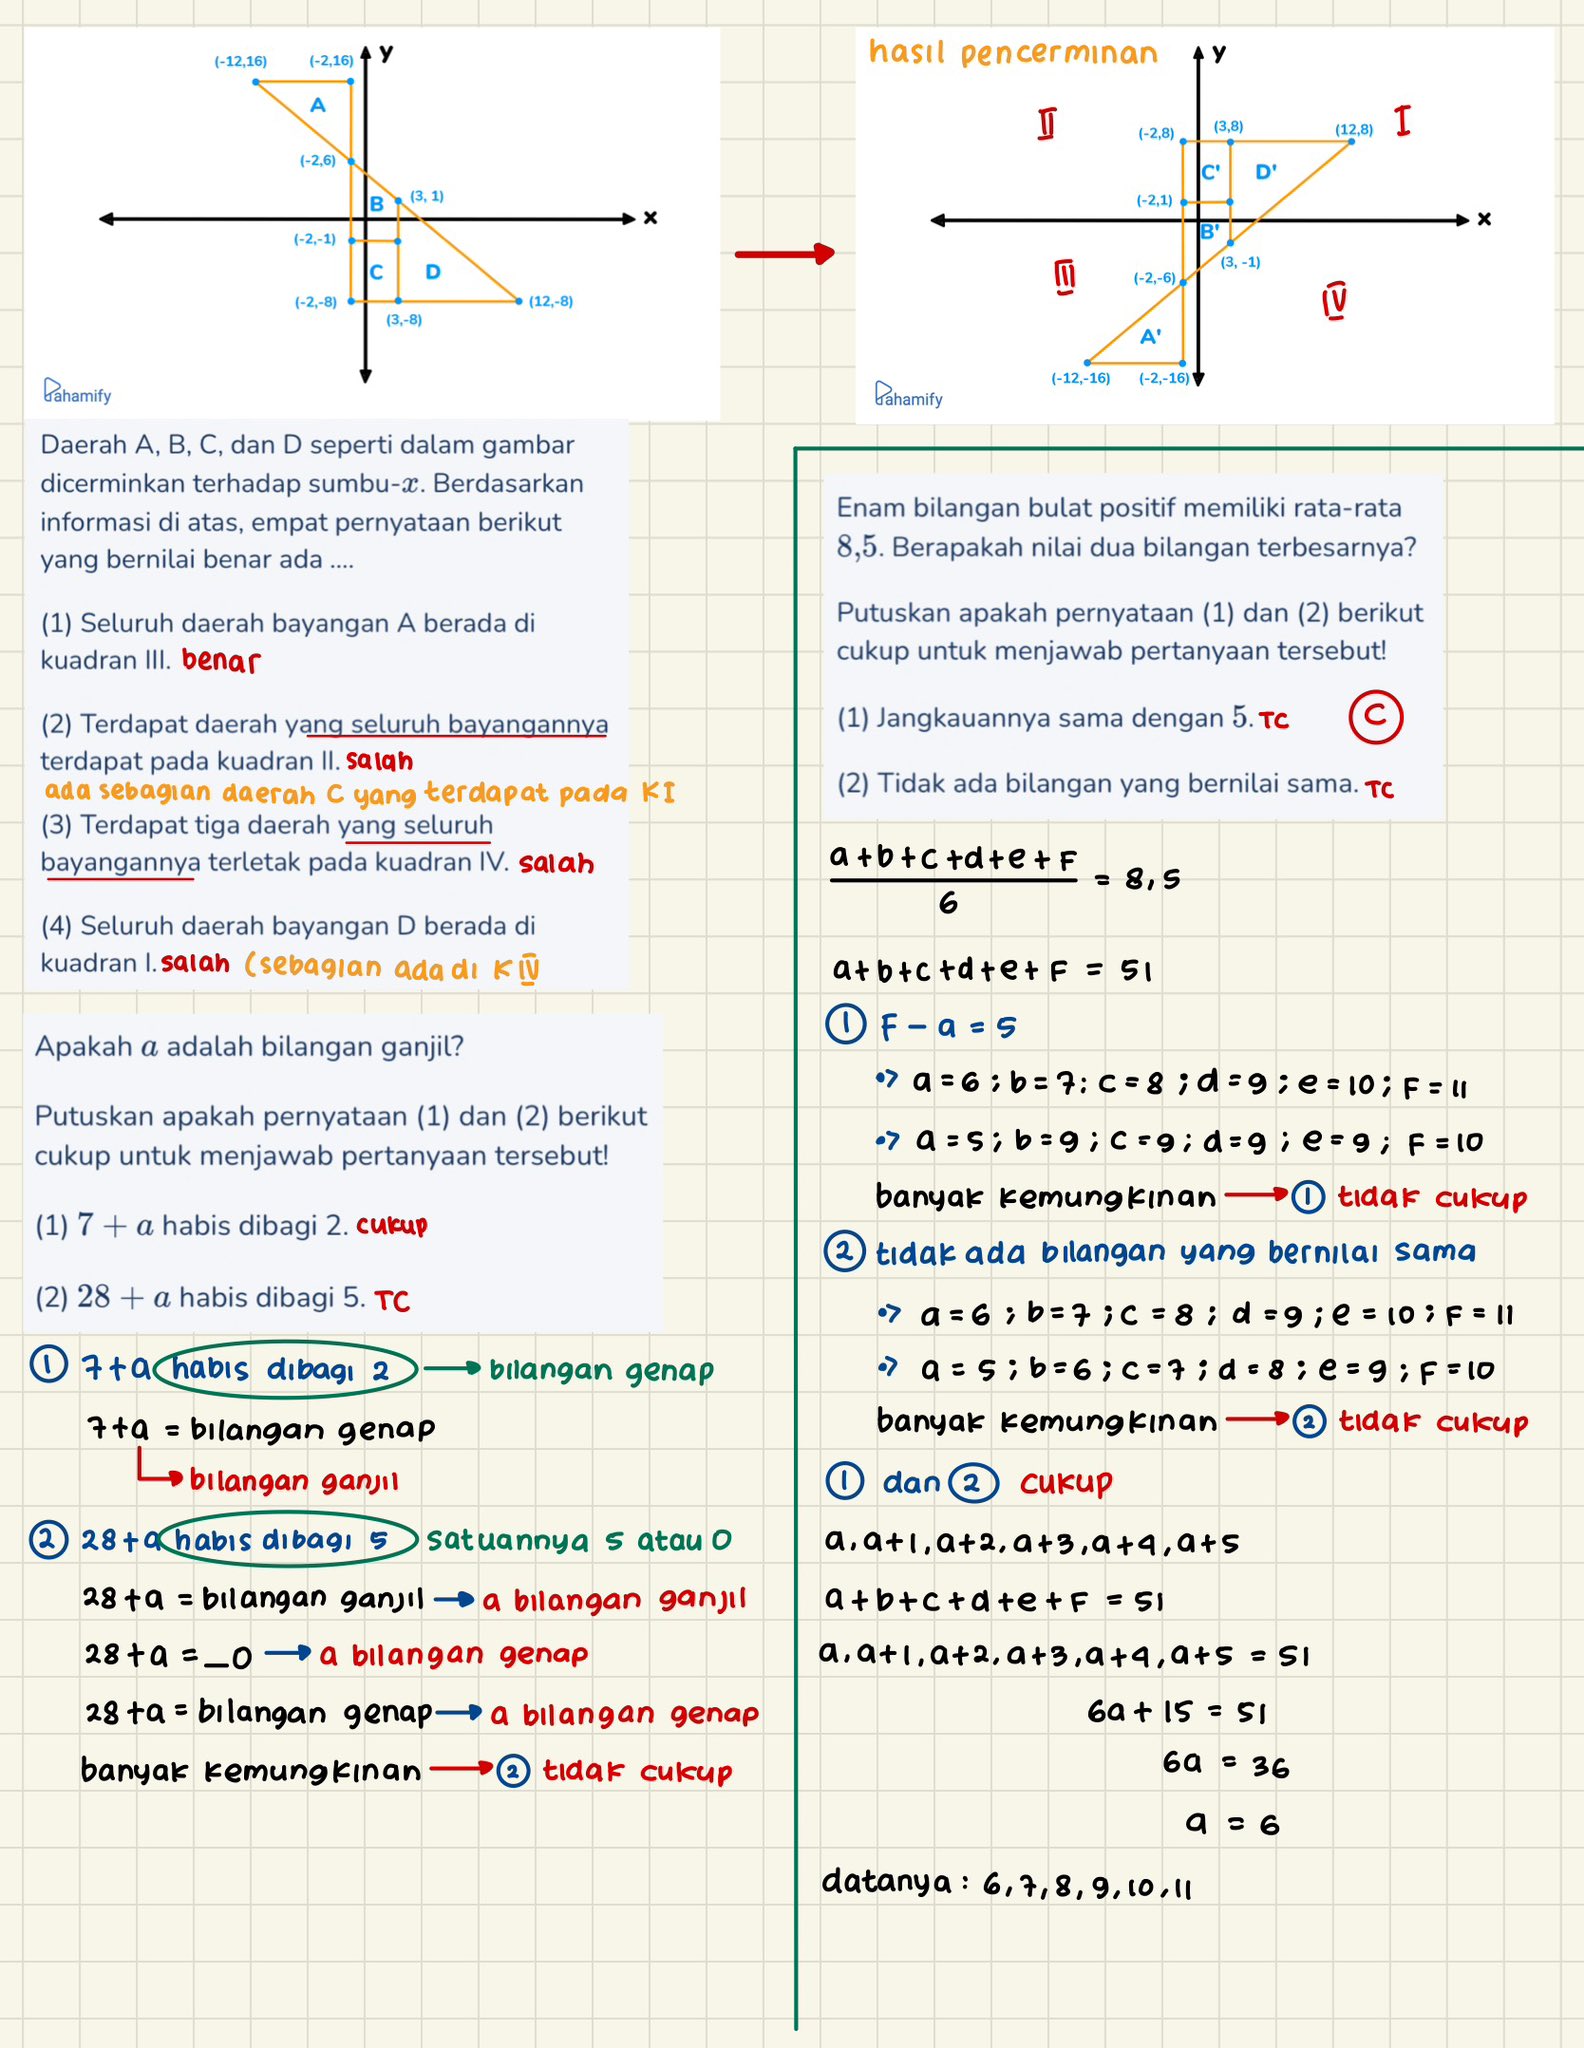 (-12,16) (-2,16) y
A
(-2,6)
(3, 1)
B
x
(-2,-1)
C D
(-2,-8) (12,-8)
(3,-8)
Pahamify
hasil pencerminan
y
II I
(-2,8) (3,8) (12,8)
C' D'
(-2,1)
x
B'
(3, -1)
III
(-2,-6)
IV
A'
(-12,-16) (-2,-16)
Pahamify
Daerah A, B, C, dan D seperti dalam gambar
dicerminkan terhadap sumbu-x. Berdasarkan
informasi di atas, empat pernyataan berikut
yang bernilai benar ada ....
(1) Seluruh daerah bayangan A berada di
kuadran III. benar
(2) Terdapat daerah yang seluruh bayangannya
terdapat pada kuadran II. salah
ada sebagian daerah C yang terdapat pada KI
(3) Terdapat tiga daerah yang seluruh
bayangannya terletak pada kuadran IV. salah
(4) Seluruh daerah bayangan D berada di
kuadran I. salah (sebagian ada di K IV
Apakah a adalah bilangan ganjil?
Putuskan apakah pernyataan (1) dan (2) berikut
cukup untuk menjawab pertanyaan tersebut!
(1) 7 + a habis dibagi 2. cukup
(2) 28 + a habis dibagi 5. TC
1 7+a habis dibagi 2 → bilangan genap
7+a = bilangan genap
bilangan ganjil
2 28+a habis dibagi 5 satuannya 5 atau 0
28+a = bilangan ganjil → a bilangan ganjil
28+a = _0 → a bilangan genap
28+a = bilangan genap → a bilangan genap
banyak kemungkinan → 2 tidak cukup
Enam bilangan bulat positif memiliki rata-rata
8,5. Berapakah nilai dua bilangan terbesarnya?
Putuskan apakah pernyataan (1) dan (2) berikut
cukup untuk menjawab pertanyaan tersebut!
(1) Jangkauannya sama dengan 5. TC C
(2) Tidak ada bilangan yang bernilai sama. TC
a+b+c+d+e+F
= 8,5
6
a+b+c+d+e+F = 51
1 F - a = 5
a=6 ; b=7: c=8 ; d=9 ; e=10 ; F=11
a=5 ; b=9 ; c=9 ; d=9 ; e=9 ; F=10
banyak kemungkinan → 1 tidak cukup
2 tidak ada bilangan yang bernilai sama
a=6 ; b=7 ; c=8 ; d=9 ; e=10 ; F=11
a=5 ; b=6 ; c=7 ; d=8 ; e=9 ; F=10
banyak kemungkinan → 2 tidak cukup
1 dan 2 cukup
a, a+1, a+2, a+3, a+4, a+5
a+b+c+d+e+F = 51
a, a+1, a+2, a+3, a+4, a+5 = 51
6a + 15 = 51
6a = 36
a = 6
datanya : 6, 7, 8, 9, 10, 11